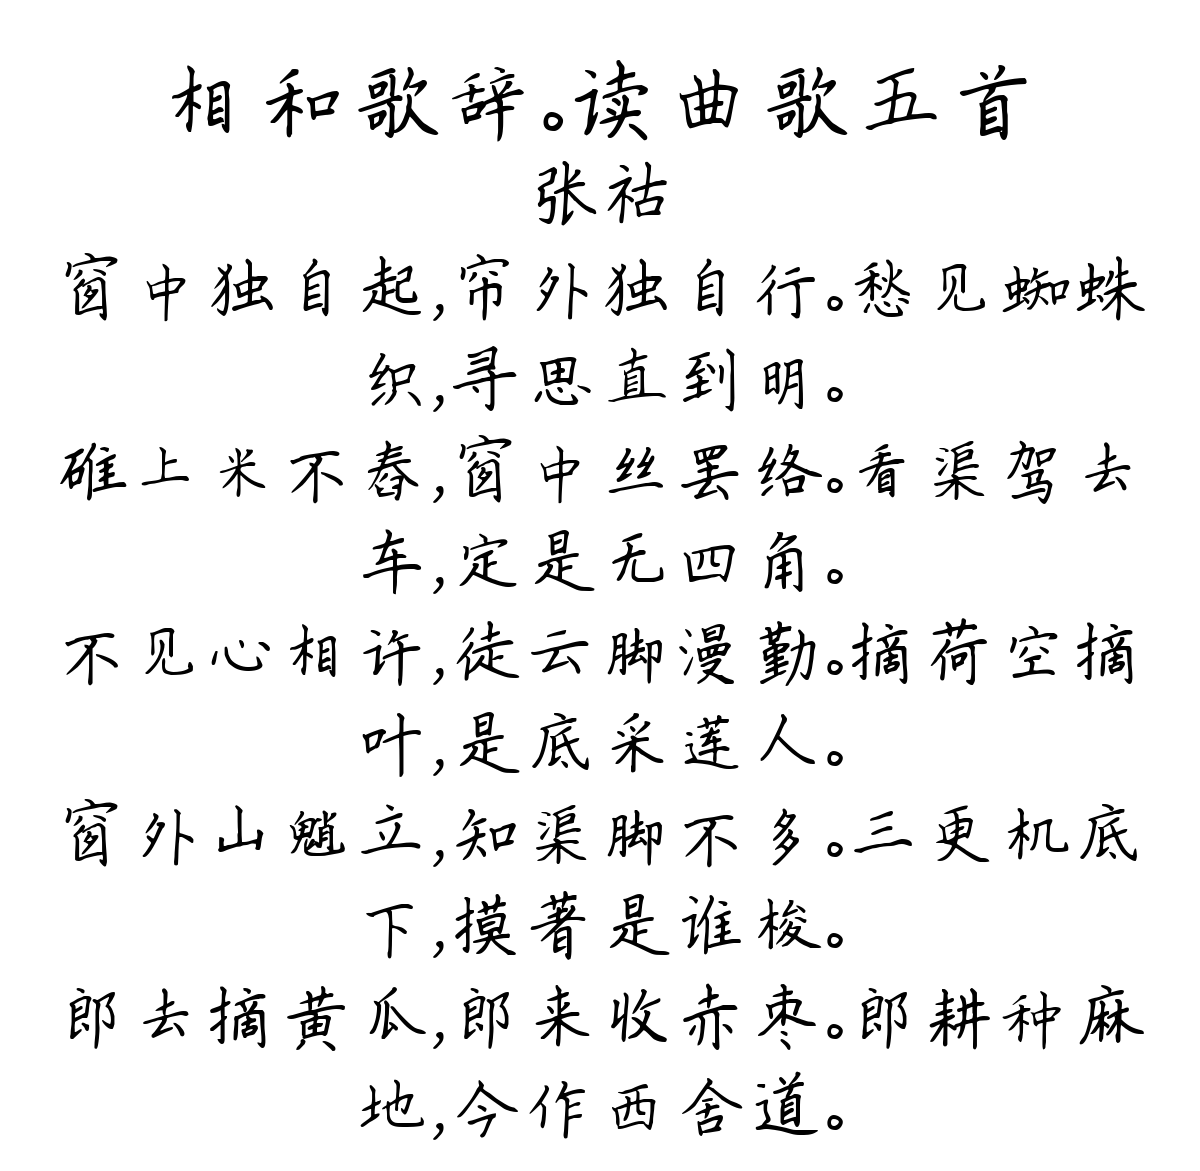 相和歌辞。读曲歌五首
张祜
窗中独自起,帘外独自行。愁见蜘蛛
织,寻思直到明。
碓上米不舂,窗中丝罢络。看渠驾去
车,定是无四角。
不见心相许,徒云脚漫勤。摘荷空摘
叶,是底采莲人。
窗外山魈立,知渠脚不多。三更机底
下,摸著是谁梭。
郎去摘黄瓜,郎来收赤枣。郎耕种麻
地,今作西舍道。